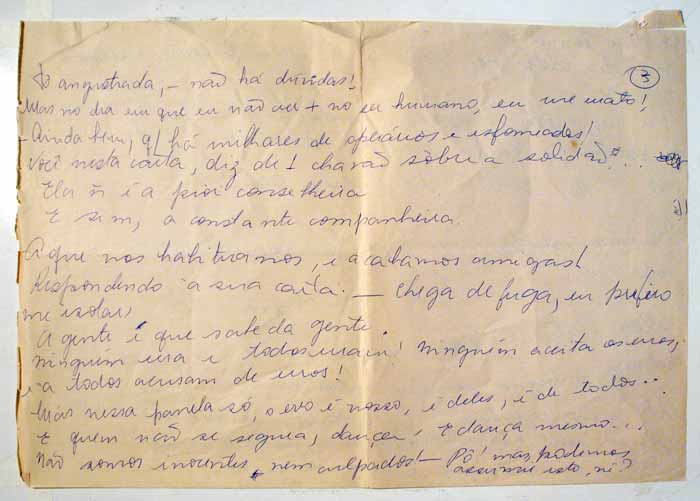 3
tô angustiada, – não há dúvidas!
Mas no dia em que eu não crer + no eu humano, eu me mato!
– Ainda bem, q/ há milhares de operários e esfomeados!
Você nesta carta, diz de 1 chavão sôbre a solidão...
Ela ñ é a pior conselheira
E sim, a constante companheira.
A que nos habituamos, e acabamos amigas!
Respondendo a sua carta. – Chega de fuga, eu prefiro
me isolar,
A gente é que sabe da gente.
Ninguém erra e todos erram! Ninguém aceita os erros,
e a todos acusam de erros!
Mas nessa panela só, o erro é nosso, é deles, é de todos...
E quem não se segura, dança, E dança mesmo...
Não somos inocentes, nem culpados! – Pô! mas, podemos
assumir isto, né?